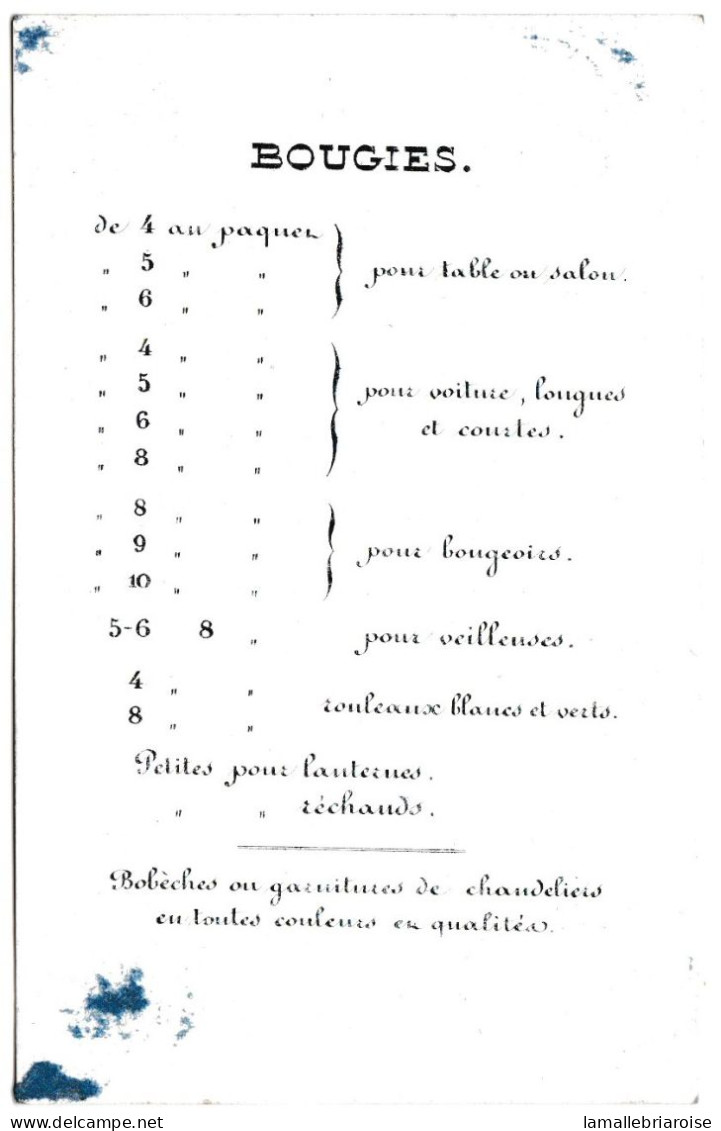 BOUGIES.
de 4 au paquet
" 5 " " pour table ou salon.
" 6 " "
" 4 " "
" 5 " " pour voiture, longues
" 6 " " et courtes.
" 8 " "
" 8 " "
" 9 " " pour bougeoirs.
" 10 " "
5-6 8 " pour veilleuses.
4 " "
8 " " rouleaux blancs et verts.
Petites pour lanternes.
" " réchauds.
Bobèches ou garnitures de chandeliers
en toutes couleurs et qualités.
lamallebriaroise